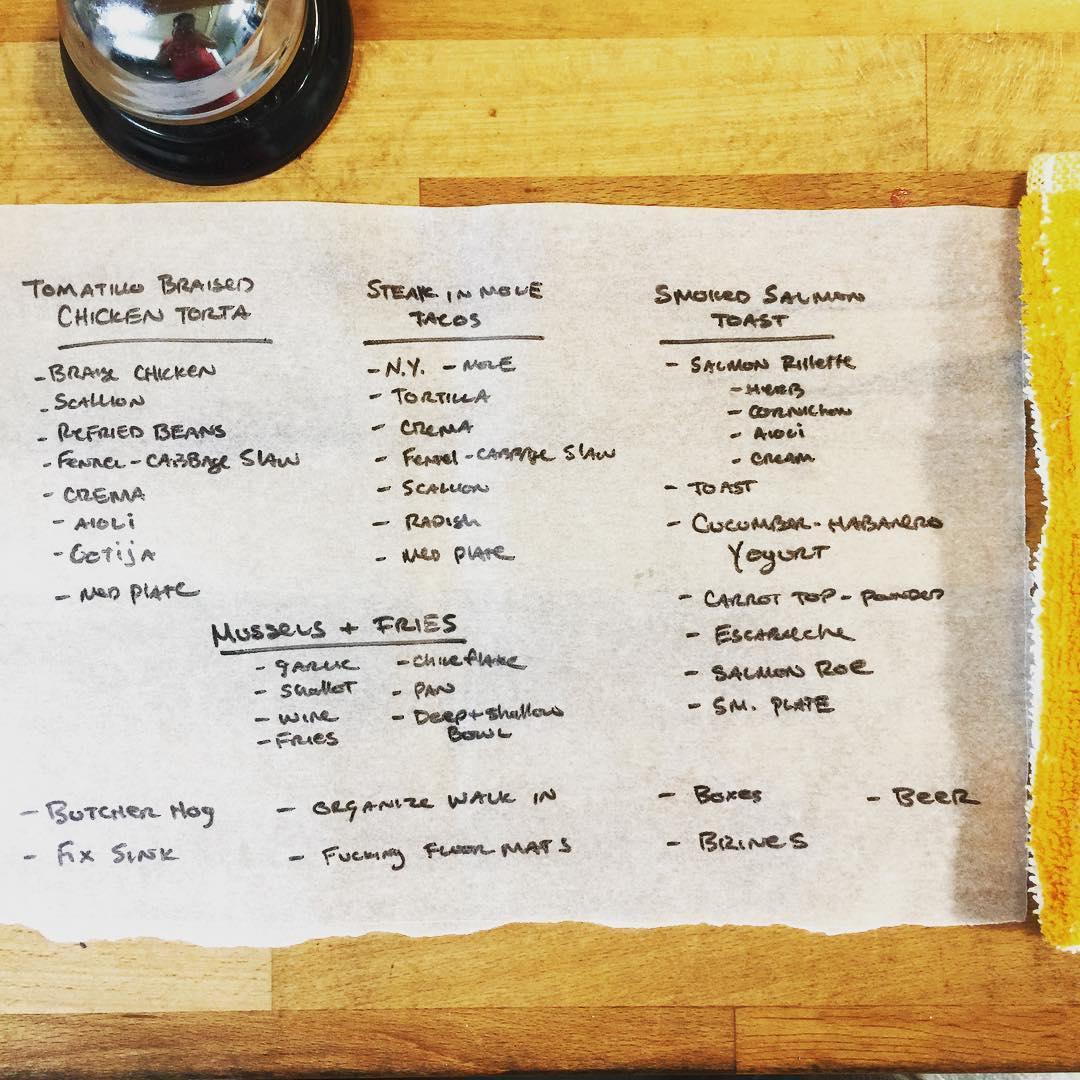 TOMATILLO BRAISED
CHICKEN TORTA
- BRAISE CHICKEN
- SCALLION
- REFRIED BEANS
- FENNEL - CABBAGE SLAW
- CREMA
- AIOLI
- COTIJA
- MED PLATE
STEAK IN MOLE
TACOS
- N.Y. - MOLE
- TORTILLA
- CREMA
- FENNEL - CABBAGE SLAW
- SCALLION
- RADISH
- MED PLATE
SMOKED SALMON
TOAST
- SALMON RILLETTE
- HERB
- CORNICHON
- AIOLI
- CREAM
- TOAST
- CUCUMBER - HABANERO
YOGURT
- CARROT TOP - POUNDED
- ESCABECHE
- SALMON ROE
- SM. PLATE
MUSSELS + FRIES
- GARLIC
- SHALLOT
- WINE
- FRIES
- CHILE FLAKE
- PAN
- DEEP + SHALLOW
BOWL
- BUTCHER HOG
- FIX SINK
- ORGANIZE WALK IN
- FUCKING FLOOR MATS
- BOXES
- BRINES
- BEER